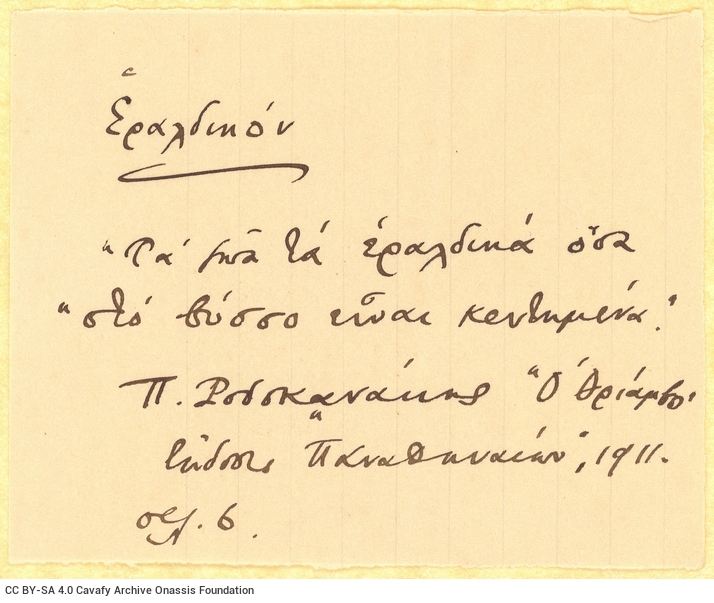 Ἑραλδικόν
"Τά ζῶα τά ἑραλδικά ὅσα
"στό βύσσο εἶναι κεντημένα."
Π. Ροδοκανάκης "Ὁ Θρίαμβος
ἔκδοσις "Παναθηναίων", 1911.
σελ. 6.
CC BY-SA 4.0 Cavafy Archive Onassis Foundation